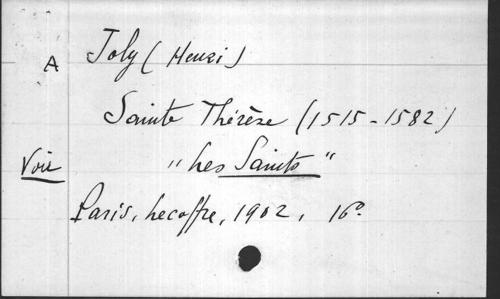 A Joly (Henri)
Sainte Thérèse (1515-1582)
Voir "Les Saints"
Paris, Lecoffre, 1902, 16°.